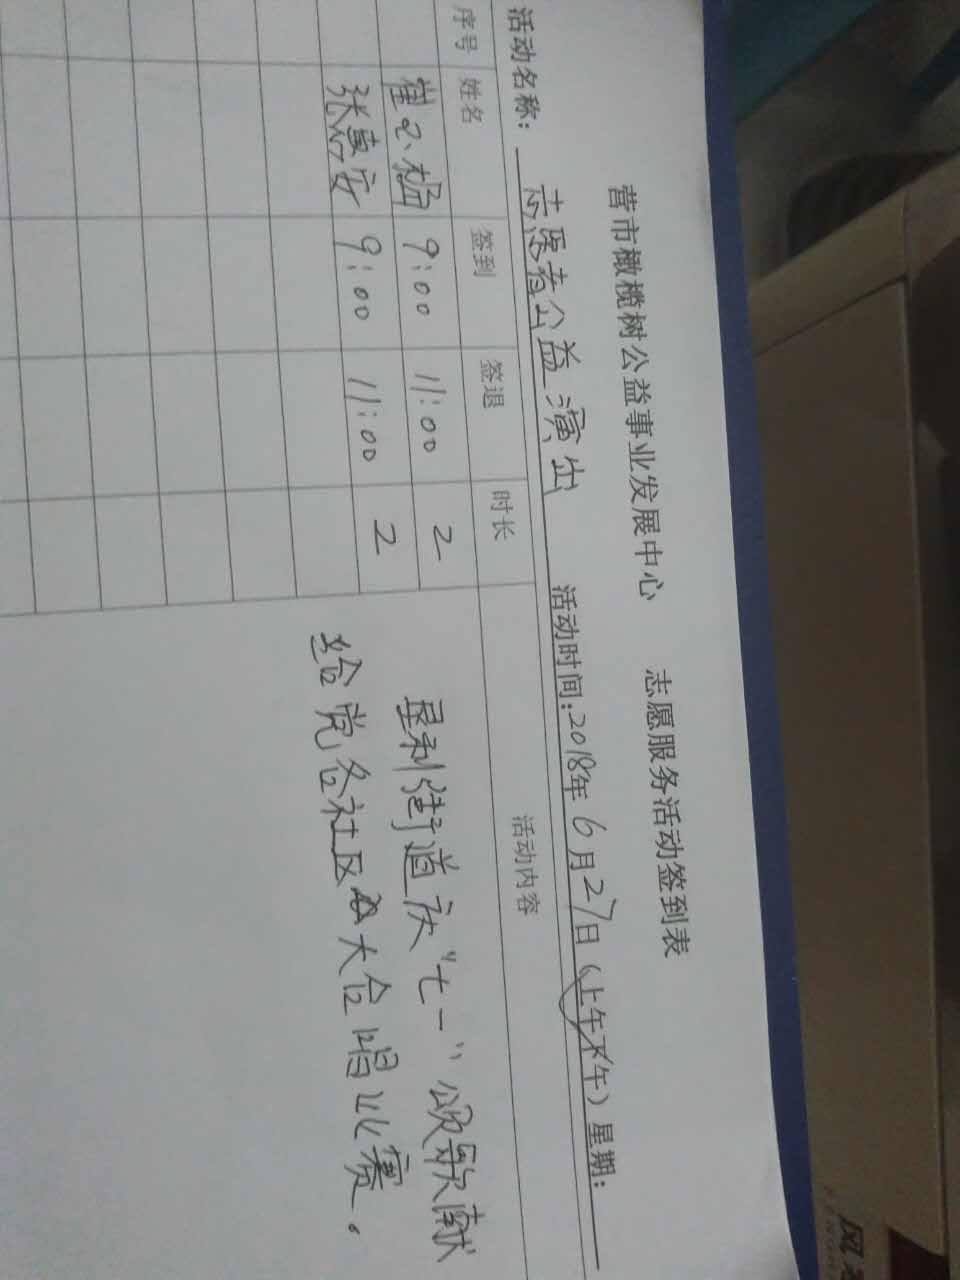 营市橄榄树公益事业发展中心 志愿服务活动签到表
活动名称: 志愿者公益演出 活动时间:2018年6月27日(上午下午)星期:
序号 姓名 签到 签退 时长 活动内容
崔 9:00 11:00 2
张惠安 9:00 11:00 2
垦利街道庆"七一"颂歌献
给党各社区大合唱比赛。
风